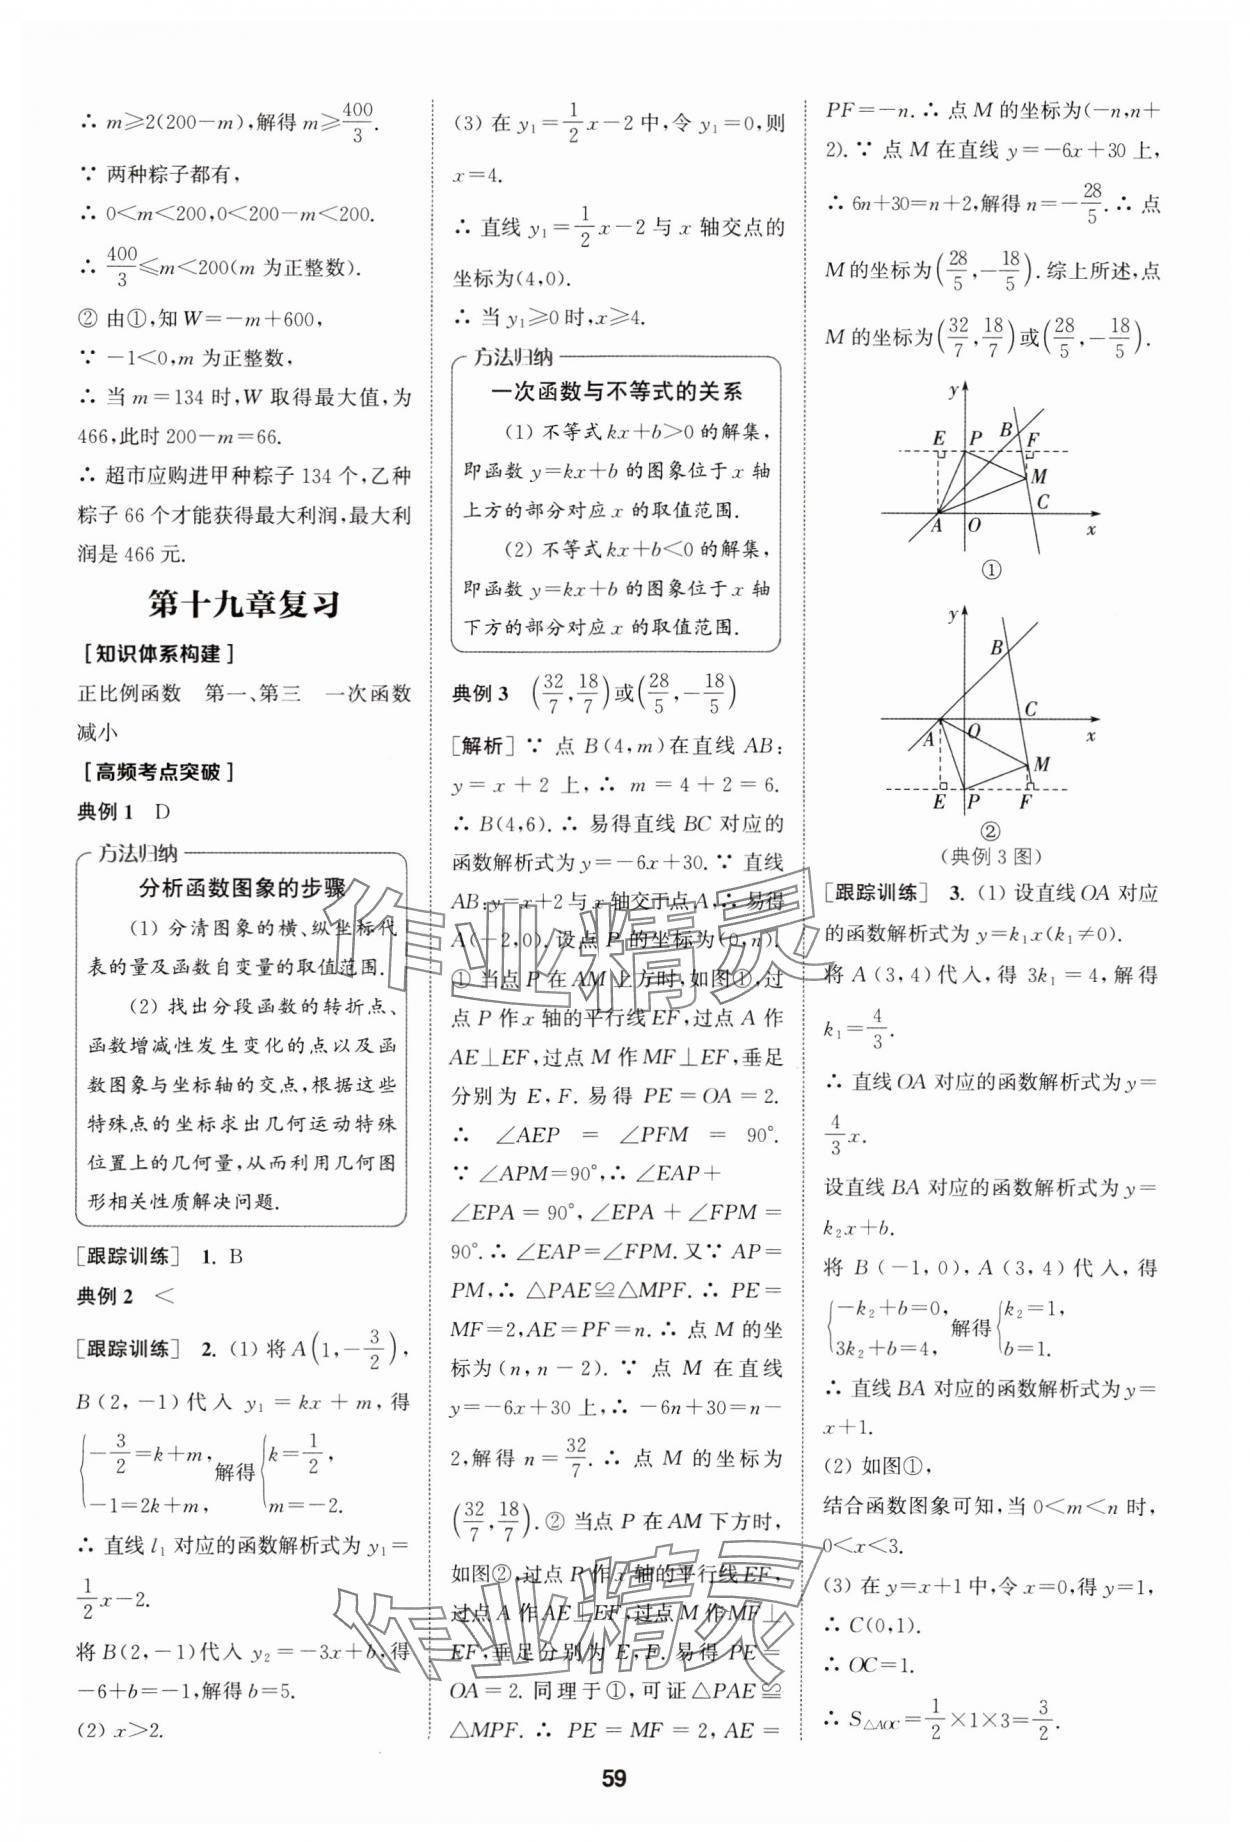 ∴ m≥2(200－m),解得 m≥400/3.
∵ 两种粽子都有,
∴ 0＜m＜200,0＜200－m＜200.
∴ 400/3≤m＜200(m 为正整数).
② 由①,知W＝－m＋600,
∵ －1＜0,m 为正整数,
∴ 当 m＝134 时,W 取得最大值,为
466,此时 200－m＝66.
∴ 超市应购进甲种粽子 134 个,乙种
粽子 66 个才能获得最大利润,最大利
润是 466 元.
第十九章复习
[知识体系构建]
正比例函数　第一、第三　一次函数
减小
[高频考点突破]
典例 1　D
方法归纳
分析函数图象的步骤
(1) 分清图象的横、纵坐标代
表的量及函数自变量的取值范围.
(2) 找出分段函数的转折点、
函数增减性发生变化的点以及函
数图象与坐标轴的交点,根据这些
特殊点的坐标求出几何运动特殊
位置上的几何量,从而利用几何图
形相关性质解决问题.
[跟踪训练]　1. B
典例 2　＜
[跟踪训练]　2. (1) 将A(1,－3/2),
B(2,－1)代入 y₁＝kx＋m,得
{－3/2＝k＋m, －1＝2k＋m, 解得 {k＝1/2, m＝－2.
∴ 直线 l₁ 对应的函数解析式为 y₁＝
1/2x－2.
将B(2,－1)代入 y₂＝－3x＋b,得
－6＋b＝－1,解得 b＝5.
(2) x＞2.
(3) 在 y₁＝1/2x－2 中,令 y₁＝0,则
x＝4.
∴ 直线 y₁＝1/2x－2 与 x 轴交点的
坐标为(4,0).
∴ 当 y₁≥0 时,x≥4.
方法归纳
一次函数与不等式的关系
(1) 不等式 kx＋b＞0 的解集,
即函数 y＝kx＋b 的图象位于 x 轴
上方的部分对应 x 的取值范围.
(2) 不等式 kx＋b＜0 的解集,
即函数 y＝kx＋b 的图象位于 x 轴
下方的部分对应 x 的取值范围.
典例 3　(32/7,18/7)或(28/5,－18/5)
[解析] ∵ 点 B(4,m)在直线 AB:
y＝x＋2 上,∴ m＝4＋2＝6.
∴ B(4,6).∴ 易得直线 BC 对应的
函数解析式为 y＝－6x＋30.∵ 直线
AB:y＝x＋2与x轴交于点A,∴ 易得
A(－2,0).设点 P 的坐标为(0,n).
① 当点 P 在 AM 上方时,如图①,过
点 P 作 x 轴的平行线 EF,过点 A 作
AE⊥EF,过点 M 作 MF⊥EF,垂足
分别为 E,F. 易得 PE＝OA＝2.
∴ ∠AEP ＝ ∠PFM ＝ 90°.
∵ ∠APM＝90°,∴ ∠EAP＋
∠EPA＝90°,∠EPA＋∠FPM＝
90°.∴ ∠EAP＝∠FPM.又∵ AP＝
PM,∴ △PAE≌△MPF.∴ PE＝
MF＝2,AE＝PF＝n.∴ 点 M 的坐
标为(n,n－2).∵ 点 M 在直线
y＝－6x＋30上,∴ －6n＋30＝n－
2,解得 n＝32/7.∴ 点 M 的坐标为
(32/7,18/7).② 当点 P 在AM 下方时,
如图②,过点 P 作 x 轴的平行线EF,
过点 A 作 AE⊥EF,过点 M 作 MF⊥
EF,垂足分别为 E,F.易得 PE＝
OA＝2. 同理于①,可证△PAE≌
△MPF.∴ PE＝MF＝2,AE＝
PF＝－n.∴ 点 M 的坐标为(－n,n＋
2).∵ 点 M 在直线 y＝－6x＋30 上,
∴ 6n＋30＝n＋2,解得 n＝－28/5.∴ 点
M 的坐标为(28/5,－18/5).综上所述,点
M 的坐标为(32/7,18/7)或(28/5,－18/5).
y
E P B F
M
C
A O x
①
y
B
C
A O x
M
E P F
②
(典例 3 图)
[跟踪训练]　3. (1) 设直线 OA 对应
的函数解析式为 y＝k₁x(k₁≠0).
将 A(3,4)代入,得 3k₁＝4,解得
k₁＝4/3.
∴ 直线 OA 对应的函数解析式为 y＝
4/3x.
设直线 BA 对应的函数解析式为 y＝
k₂x＋b.
将 B(－1,0),A(3,4)代入,得
{－k₂＋b＝0, 3k₂＋b＝4, 解得 {k₂＝1, b＝1.
∴ 直线 BA 对应的函数解析式为 y＝
x＋1.
(2) 如图①,
结合函数图象可知,当 0＜m＜n 时,
0＜x＜3.
(3) 在 y＝x＋1中,令 x＝0,得 y＝1,
∴ C(0,1).
∴ OC＝1.
∴ S△AOC＝1/2×1×3＝3/2.
59
作业精灵
作业精灵